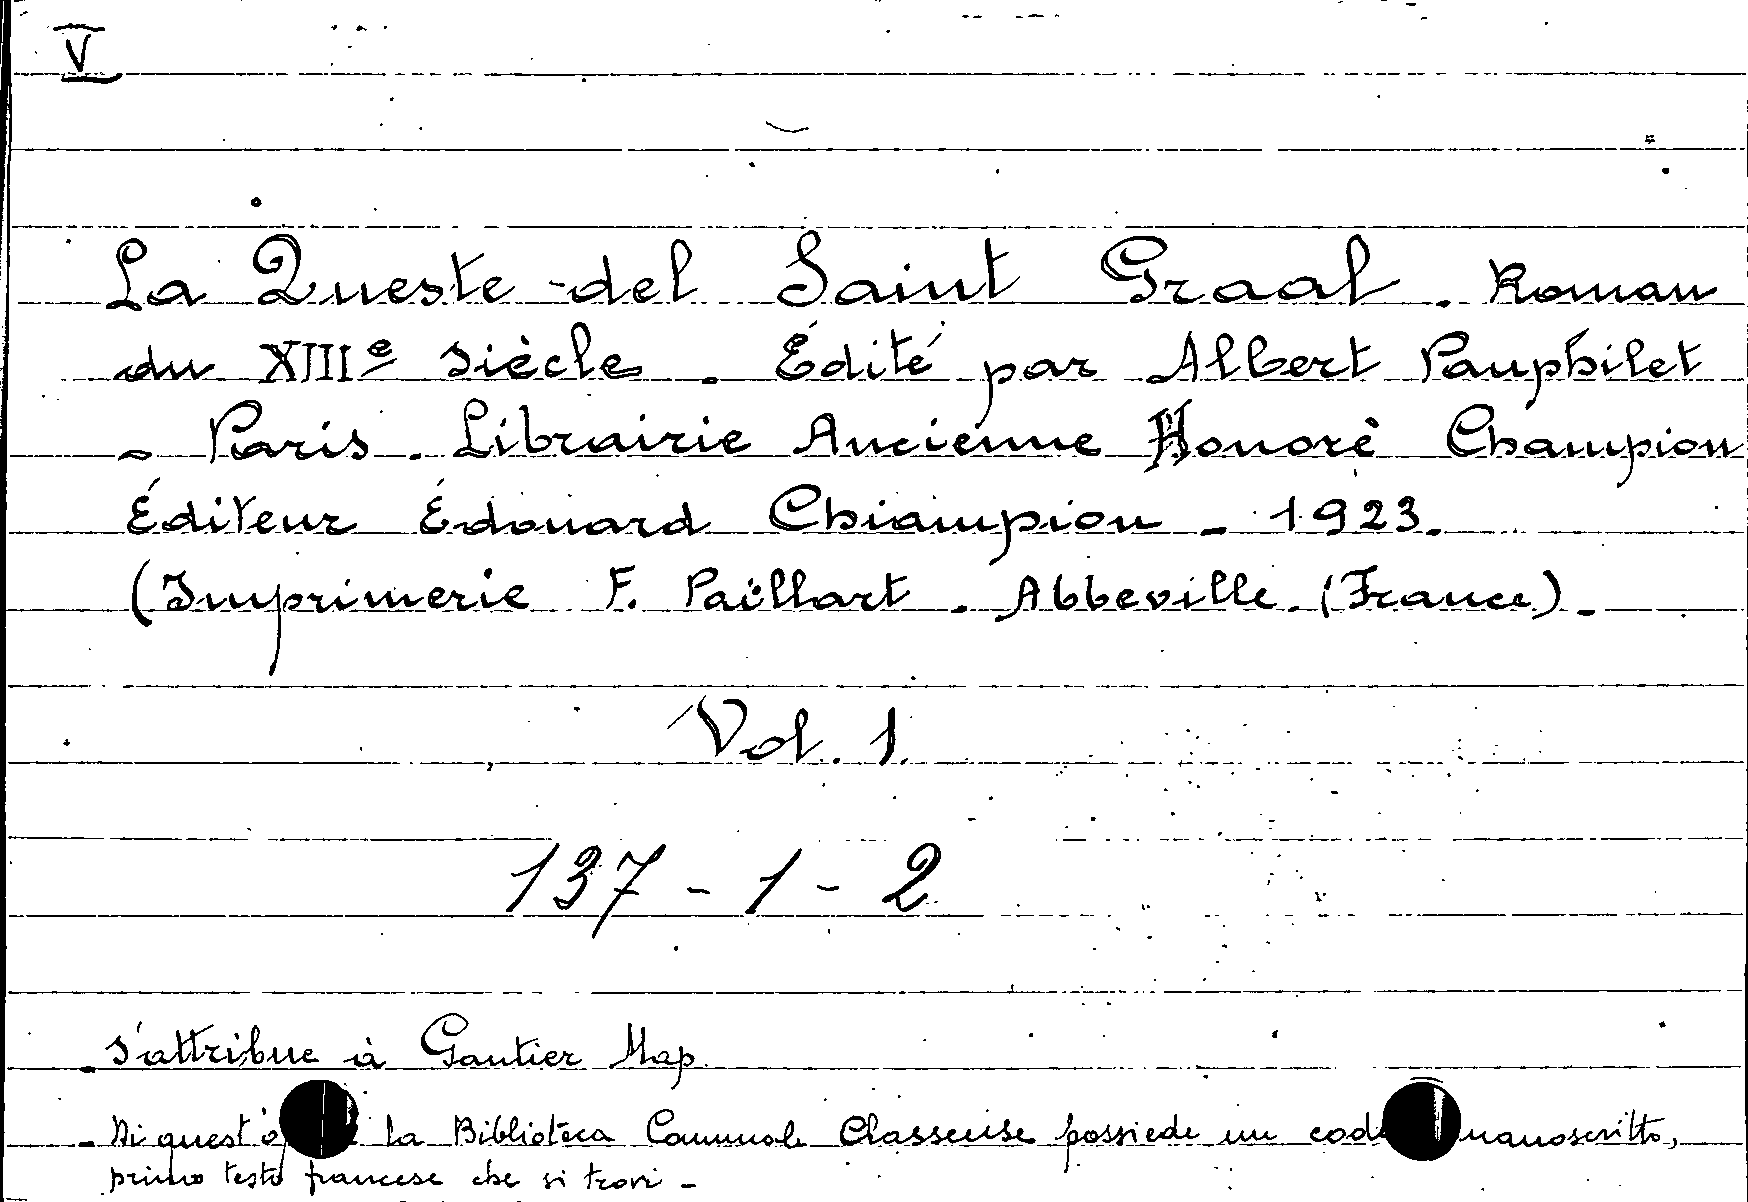 V
La Queste del Saint Graal. Roman
du XIIIe siècle. Édité par Albert Pauphilet
- Paris. Librairie Ancienne Honorè Champion
Éditeur Édouard Chiampion - 1923.
(Imprimerie F. Paillart. Abbeville. (France).-
Vol. 1.
137-1-2
- S'attribue à Gautier Map.
- Di quest'o la Biblioteca Comunale Classense possiede un cod manoscritto,
primo testo francese che si trovi -